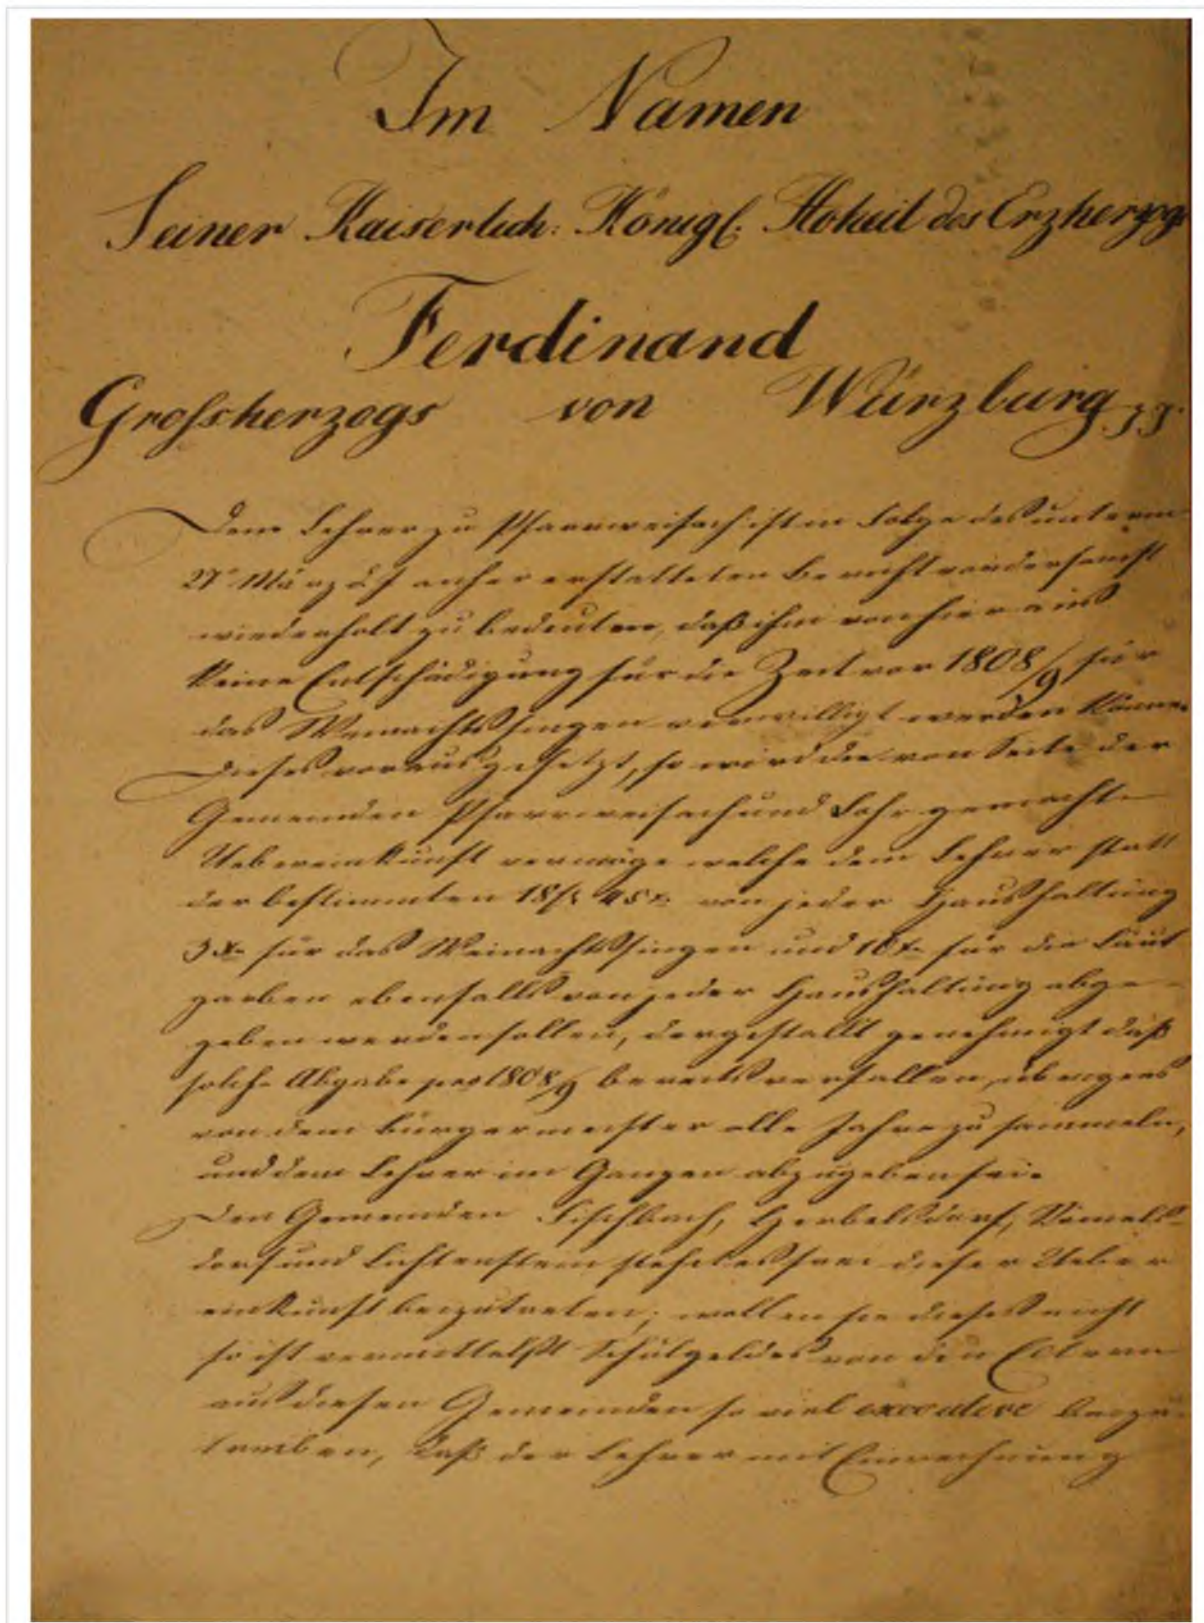 Im Namen
Seiner Kaiserlich: Königl: Hoheit des Erzherzogs
Ferdinand
Grossherzogs von Würzburg
Dem Lehrer zu Pfarrweisach ist in Folge des unterm
27t März d J anher erstatteten Bericht vordersamst
wiederholt zu bedeuten, daß ihm von hier aus
keine Entschädigung für die Zeit vor 1808/9 für
das Weinachtssingen verwilligt werden könne.
Dieses vorausgesetzt, so wird die von Seite der
Gemeinden Pfarrweisach und Lohr gemachte
Uebereinkunft vermöge welche dem Lehrer statt
der bestimmten 18 fl 45 x von jeder Haushaltung
3 x für das Weinachtssingen und 10 x für die Läut
garben ebenfalls von jeder Haushaltung abge-
geben werden sollen, dergestallt genehmigt daß
solche Abgabe pro 1808/9 bereits verfallen, übrigens
von dem Bürgermeister alle Jahre zu sammeln,
und dem Lehrer im Ganzen abzugeben sei.
Den Gemeinden Fischbach, Herbelsdorf, Römels-
dorf und Lichtenstein stehet es frei dieser Ueber
einkunft beizutreten; wollen sie dieses nicht
so ist vermittelst Schulgeldes von den Eltern
aus diesen Gemeinden so viel executive beizu-
treiben, daß der Lehrer mit Einrechnung